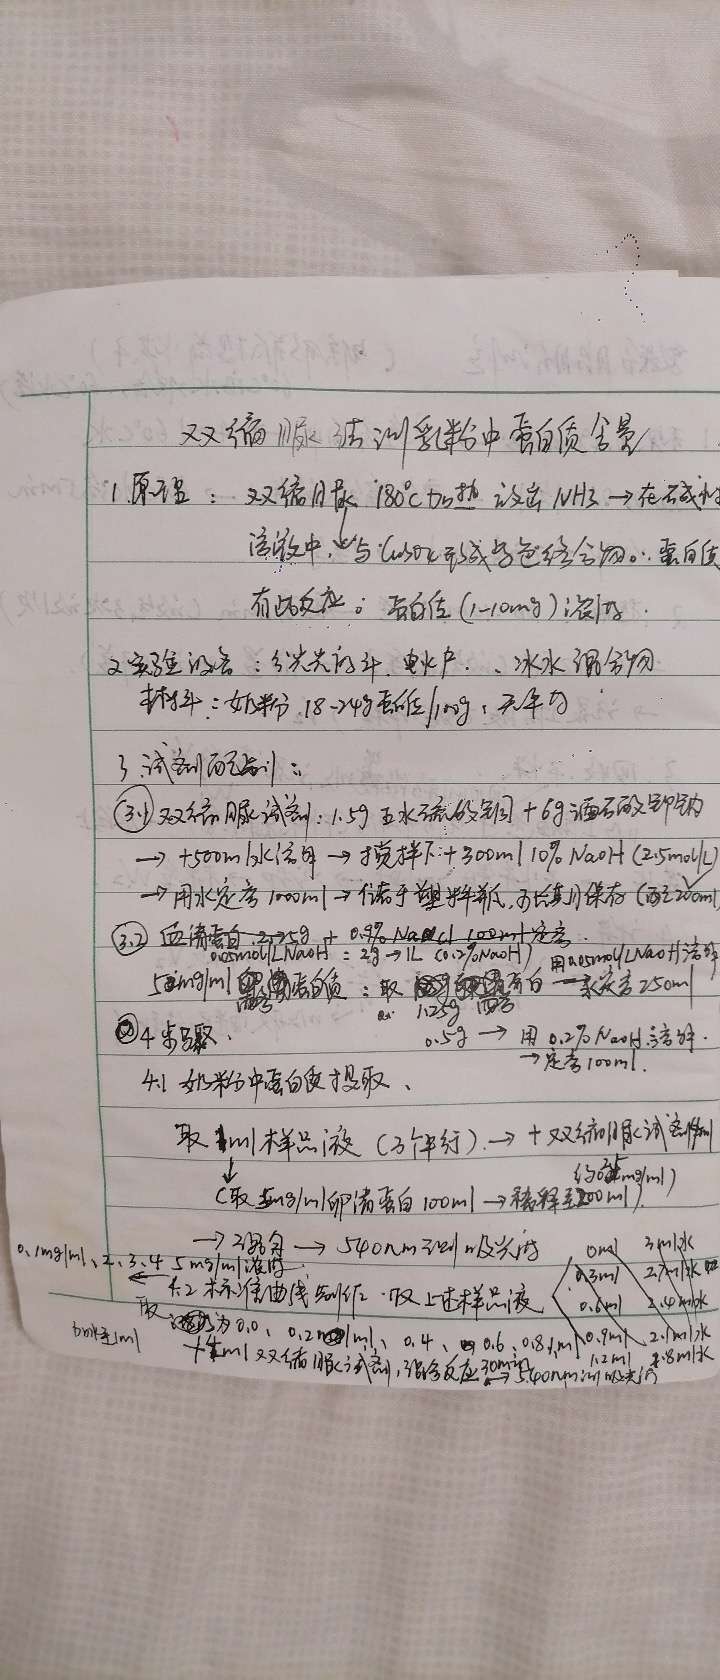 双缩脲法测乳粉中蛋白质含量
1.原理: 双缩脲 180℃加热 放出 NH3 → 在碱性
溶液中, 与CuSO4形成紫色络合物。 蛋白质
有此反应。 蛋白质(1-10mg)浓度.
2.实验设备:分光光度计、电炉、冰水混合物
材料:奶粉 18-24g蛋白质/100g,
3.试剂配制:
(3.1) 双缩脲试剂:1.5g 五水硫酸铜 + 6g 酒石酸钾钠
→ +500ml水溶解 → 搅拌下+300ml 10% NaOH (2.5mol/L)
→ 用水定容1000ml → 储于塑料瓶,可长期保存 (配200ml)
(3.2) 血清蛋白 + 0.9% NaCl 100ml定容.
0.05mol/L NaOH : 2g → 1L (0.2%NaOH) 用0.05mol/L NaOH溶解
5mg/ml 蛋白质 : 取 1.25g 蛋白 定容250ml
0.5g → 用 0.2% NaOH 溶解.
→ 定容100ml.
4 步骤.
4.1 奶粉中蛋白质提取、
取 1ml样品液 (3个平行) → + 双缩脲试剂 ml
(取 5mg/ml卵清蛋白 100ml → 稀释至200ml)
→ 混匀 → 540nm测吸光度
0ml 3ml水
0.3ml 2.7ml水
0.6ml 2.4ml水
0.9ml 2.1ml水
1.2ml 1.8ml水
0、1mg/ml、2、3、4 5mg/ml浓度.
4.2 标准曲线制作 取上述样品液
取 为0.0、0.2 ml、0.4、0.6、0.8、 ml
加水至1ml
+4ml双缩脲试剂,混合反应30min → 540nm测吸光度